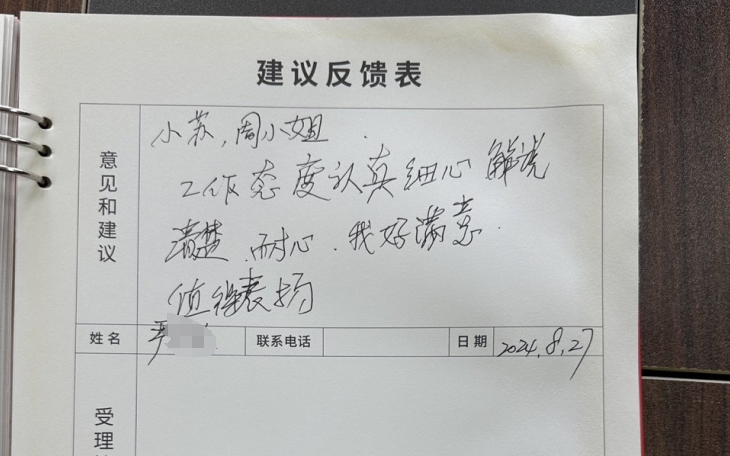 建议反馈表
意见和建议
小苏,周小姐.
工作态度认真细心 解说
清楚.耐心.我好满意.
值得表扬
姓名 严 联系电话 日期 2024.8.27
受理